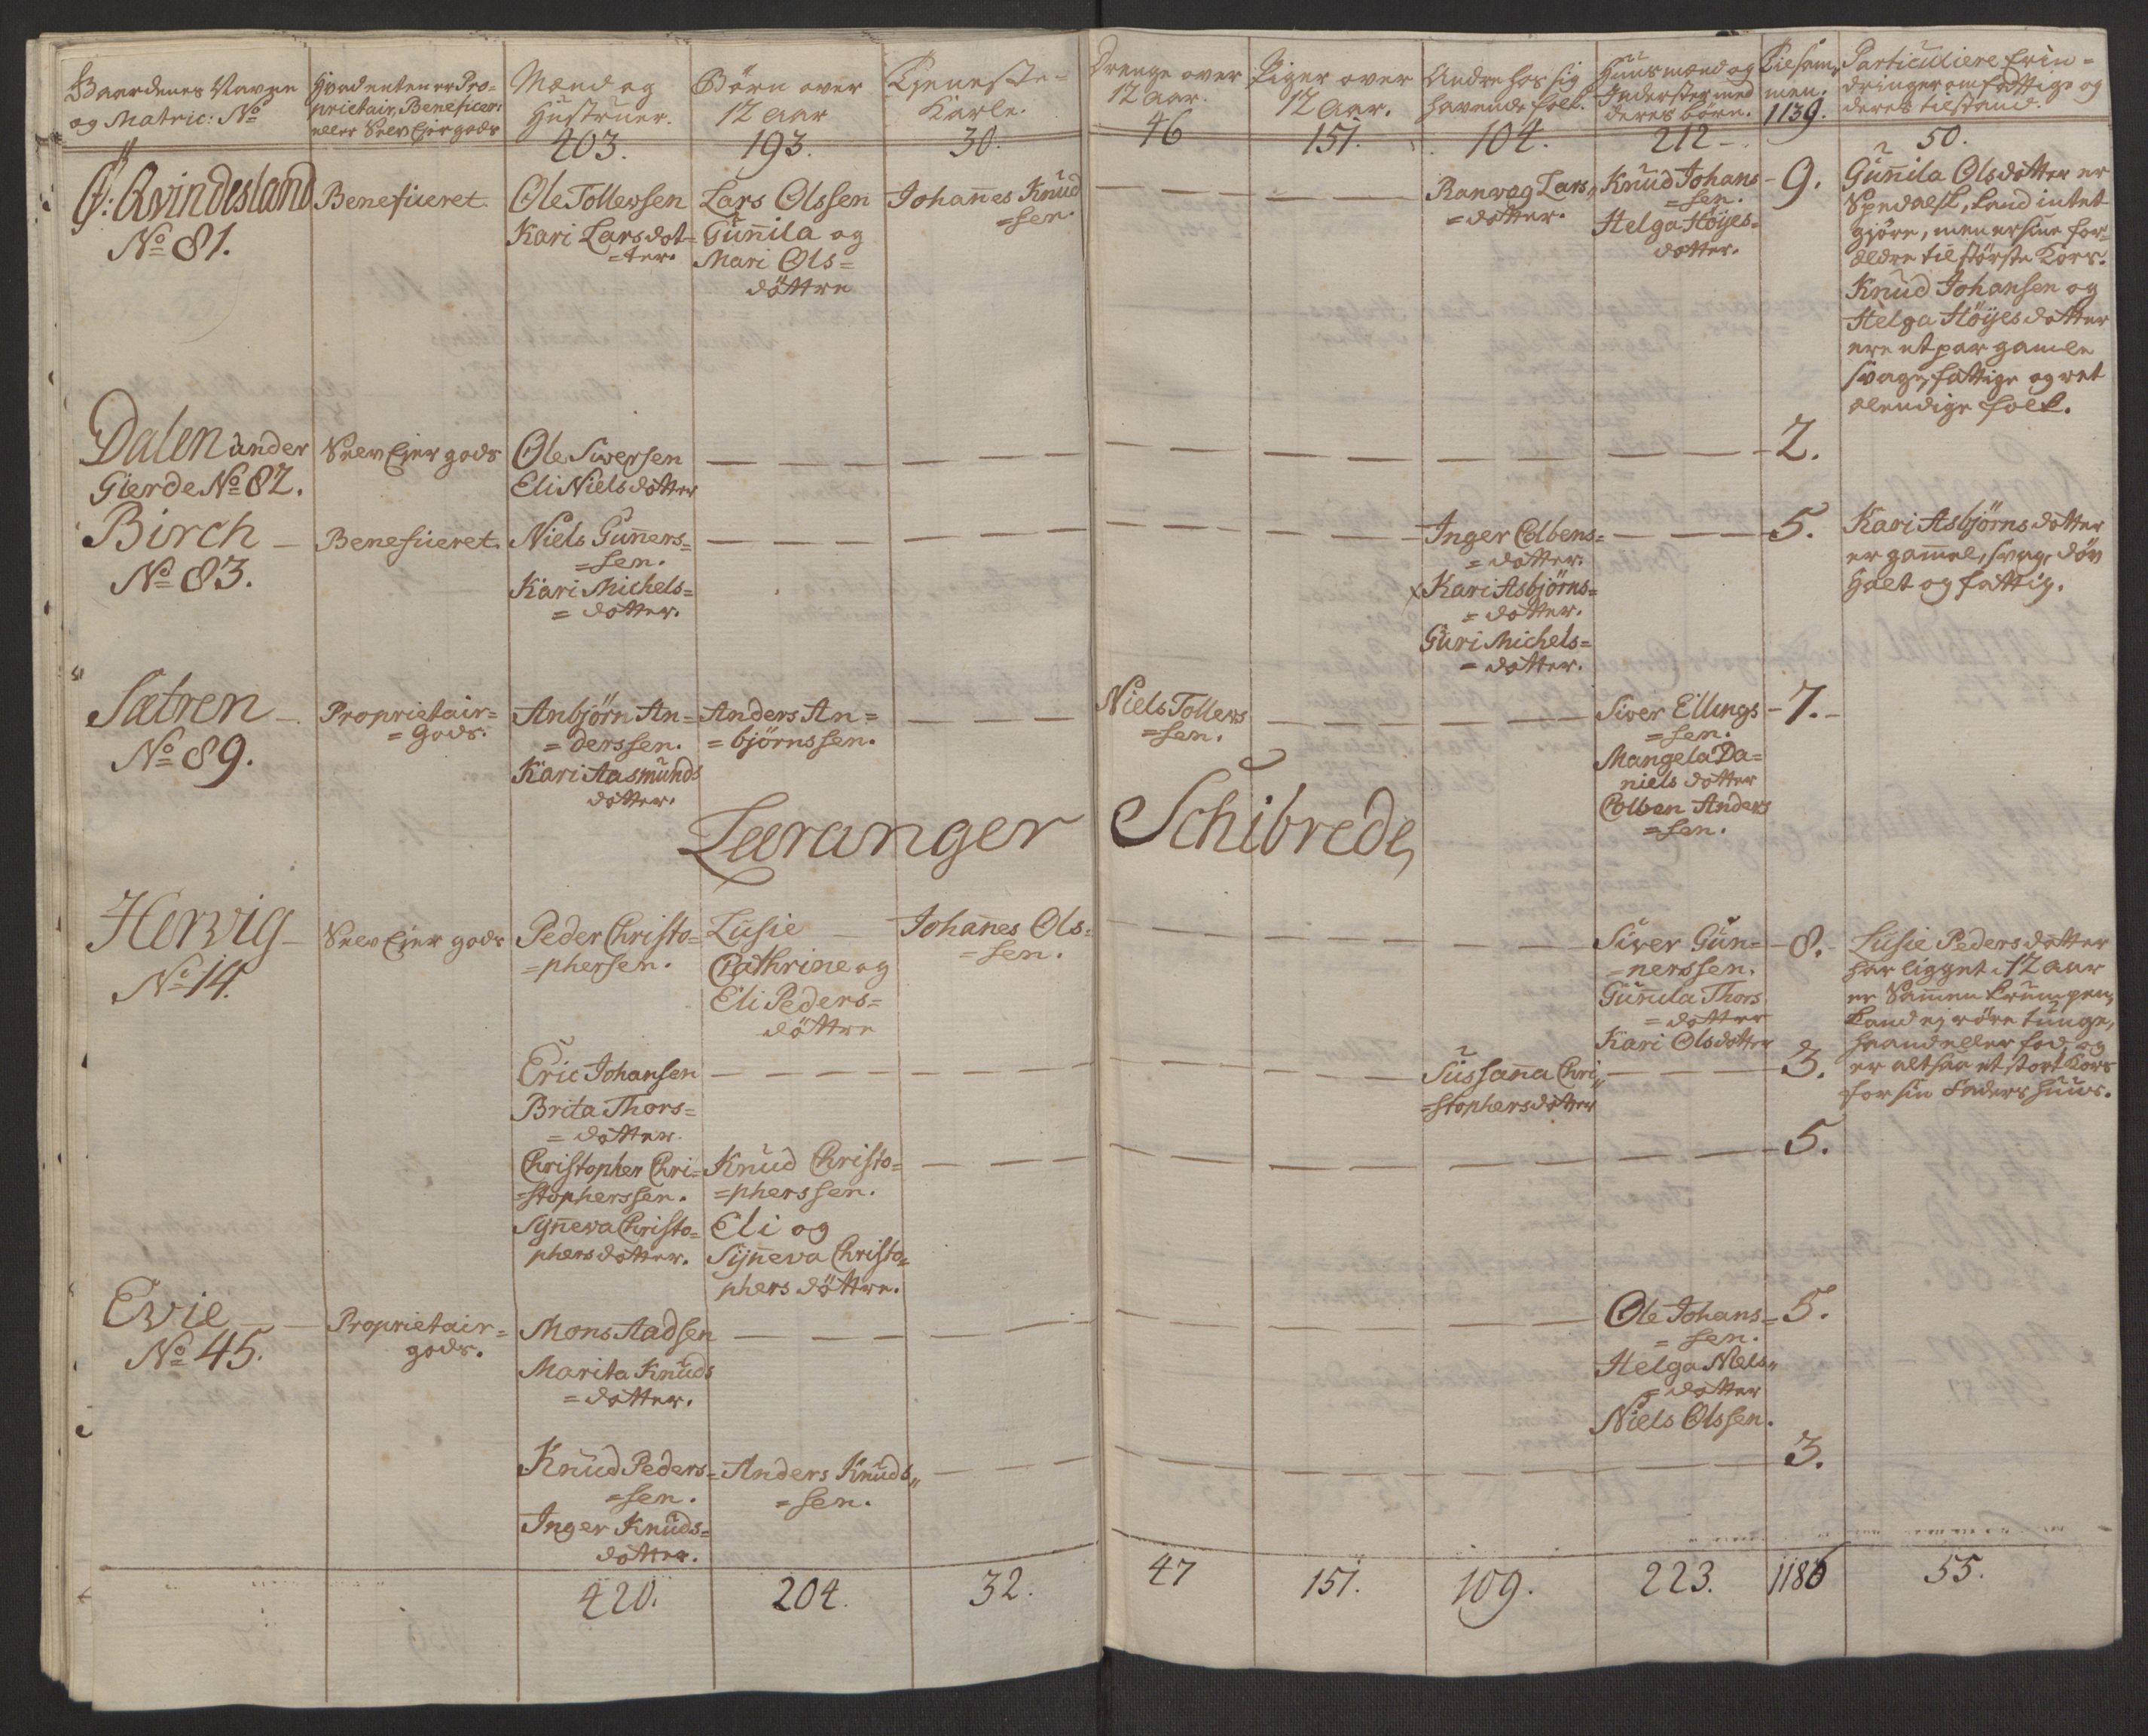 Gaardenes Navne
og Matric: No
Hvad enten er Pro-
prietair, Beneficer:
eller Selv Ejer gods
Mænd og
Hustruer.
403.
Børn over
12 Aar
193.
Tieneste-
Karle.
30.
Drenge over
12 Aar.
46
Piger over
12 Aar.
151.
Andre hos sig
havende folk.
104.
Huusmænd og
Inderster med
deres børn.
212
Tilsam-
men.
1139.
Particuliere Erin-
dringer om fattige og
deres tilstand.
50.
Qvindesland
No 81.
Beneficeret.
Ole Tollevsen
Kari Larsdot-
=ter.
Lars Olssen
Gunnila og
Mari Ols=
døttre
Johannes Knud
=sen.
Ranvag Lars„
=dotter.
Knud Johans
=sen.
Helga Höyes=
dotter.
9.
Gunnila Olsdotter er
Spedalsk, kand intet
giöre, men er sine for-
ældre til störste Kors.
Knud Johansen og
Helga Höyesdotter
ere et par gamle
svage, fattige og ret
elendige folk.
Dalen under
Gierde No 82.
Selv Ejer gods
Ole Siversen
Eli Nielsdotter
2.
Birch
No 83.
Beneficeret.
Niels Gunners=
=sen.
Kari Michels=
=dotter.
Inger Colbens=
=dotter.
x Kari Asbjörns=
=dotter.
Guri Michels=
=dotter.
5.
Kari Asbjörnsdotter
er gammel, svag, döv
halt og fattig.
Sætren
No 89.
Proprietair=
=Gods.
Anbjörn An=
=derssen.
Kari Aasmunds
dotter.
Anders An=
=björnssen.
Niels Tollevs
=sen.
Siver Ellings
=sen.
Mangela Da=
niels dotter
Colben Anders
=sen.
7.
Læranger Schibrede,
Hervig
No 14.
Selv Ejer gods
Peder Christo=
=phersen.
Lusie
Cathrine og
Eli Peders=
döttre
Johannes Ols=
=sen.
Siver Gun=
=nerssen.
Gunnula Thors
=dotter
Kari Olsdotter
8.
Lusie Pedersdotter
har ligget i 12 Aar
er Sammen krumpen,
kand ej röre tunge,
haand eller fod, og
er altsaa et stort Kors
for sin Faders Huus.
Eric Johansen
Brita Thors=
=dotter.
Sussanna Chri„
=stophersdotter
3.
Christopher Chri=
=stopherssen.
Synneva Christo=
phersdotter.
Knud Christo=
=pherssen.
Eli og
Synneva Christo=
phers döttre.
5.
Evie
No 45.
Proprietair=
gods.
Mons Aadsen
Marita Knuds
=dotter.
Ole Johans=
=sen.
Helga Niels„
=dotter
Niels Olssen.
5.
Knud Peders=
=sen.
Inger Knuds=
dotter.
Anders Knuds„
=sen.
3.
420.
204.
32.
47
151.
109.
223.
1186
55.